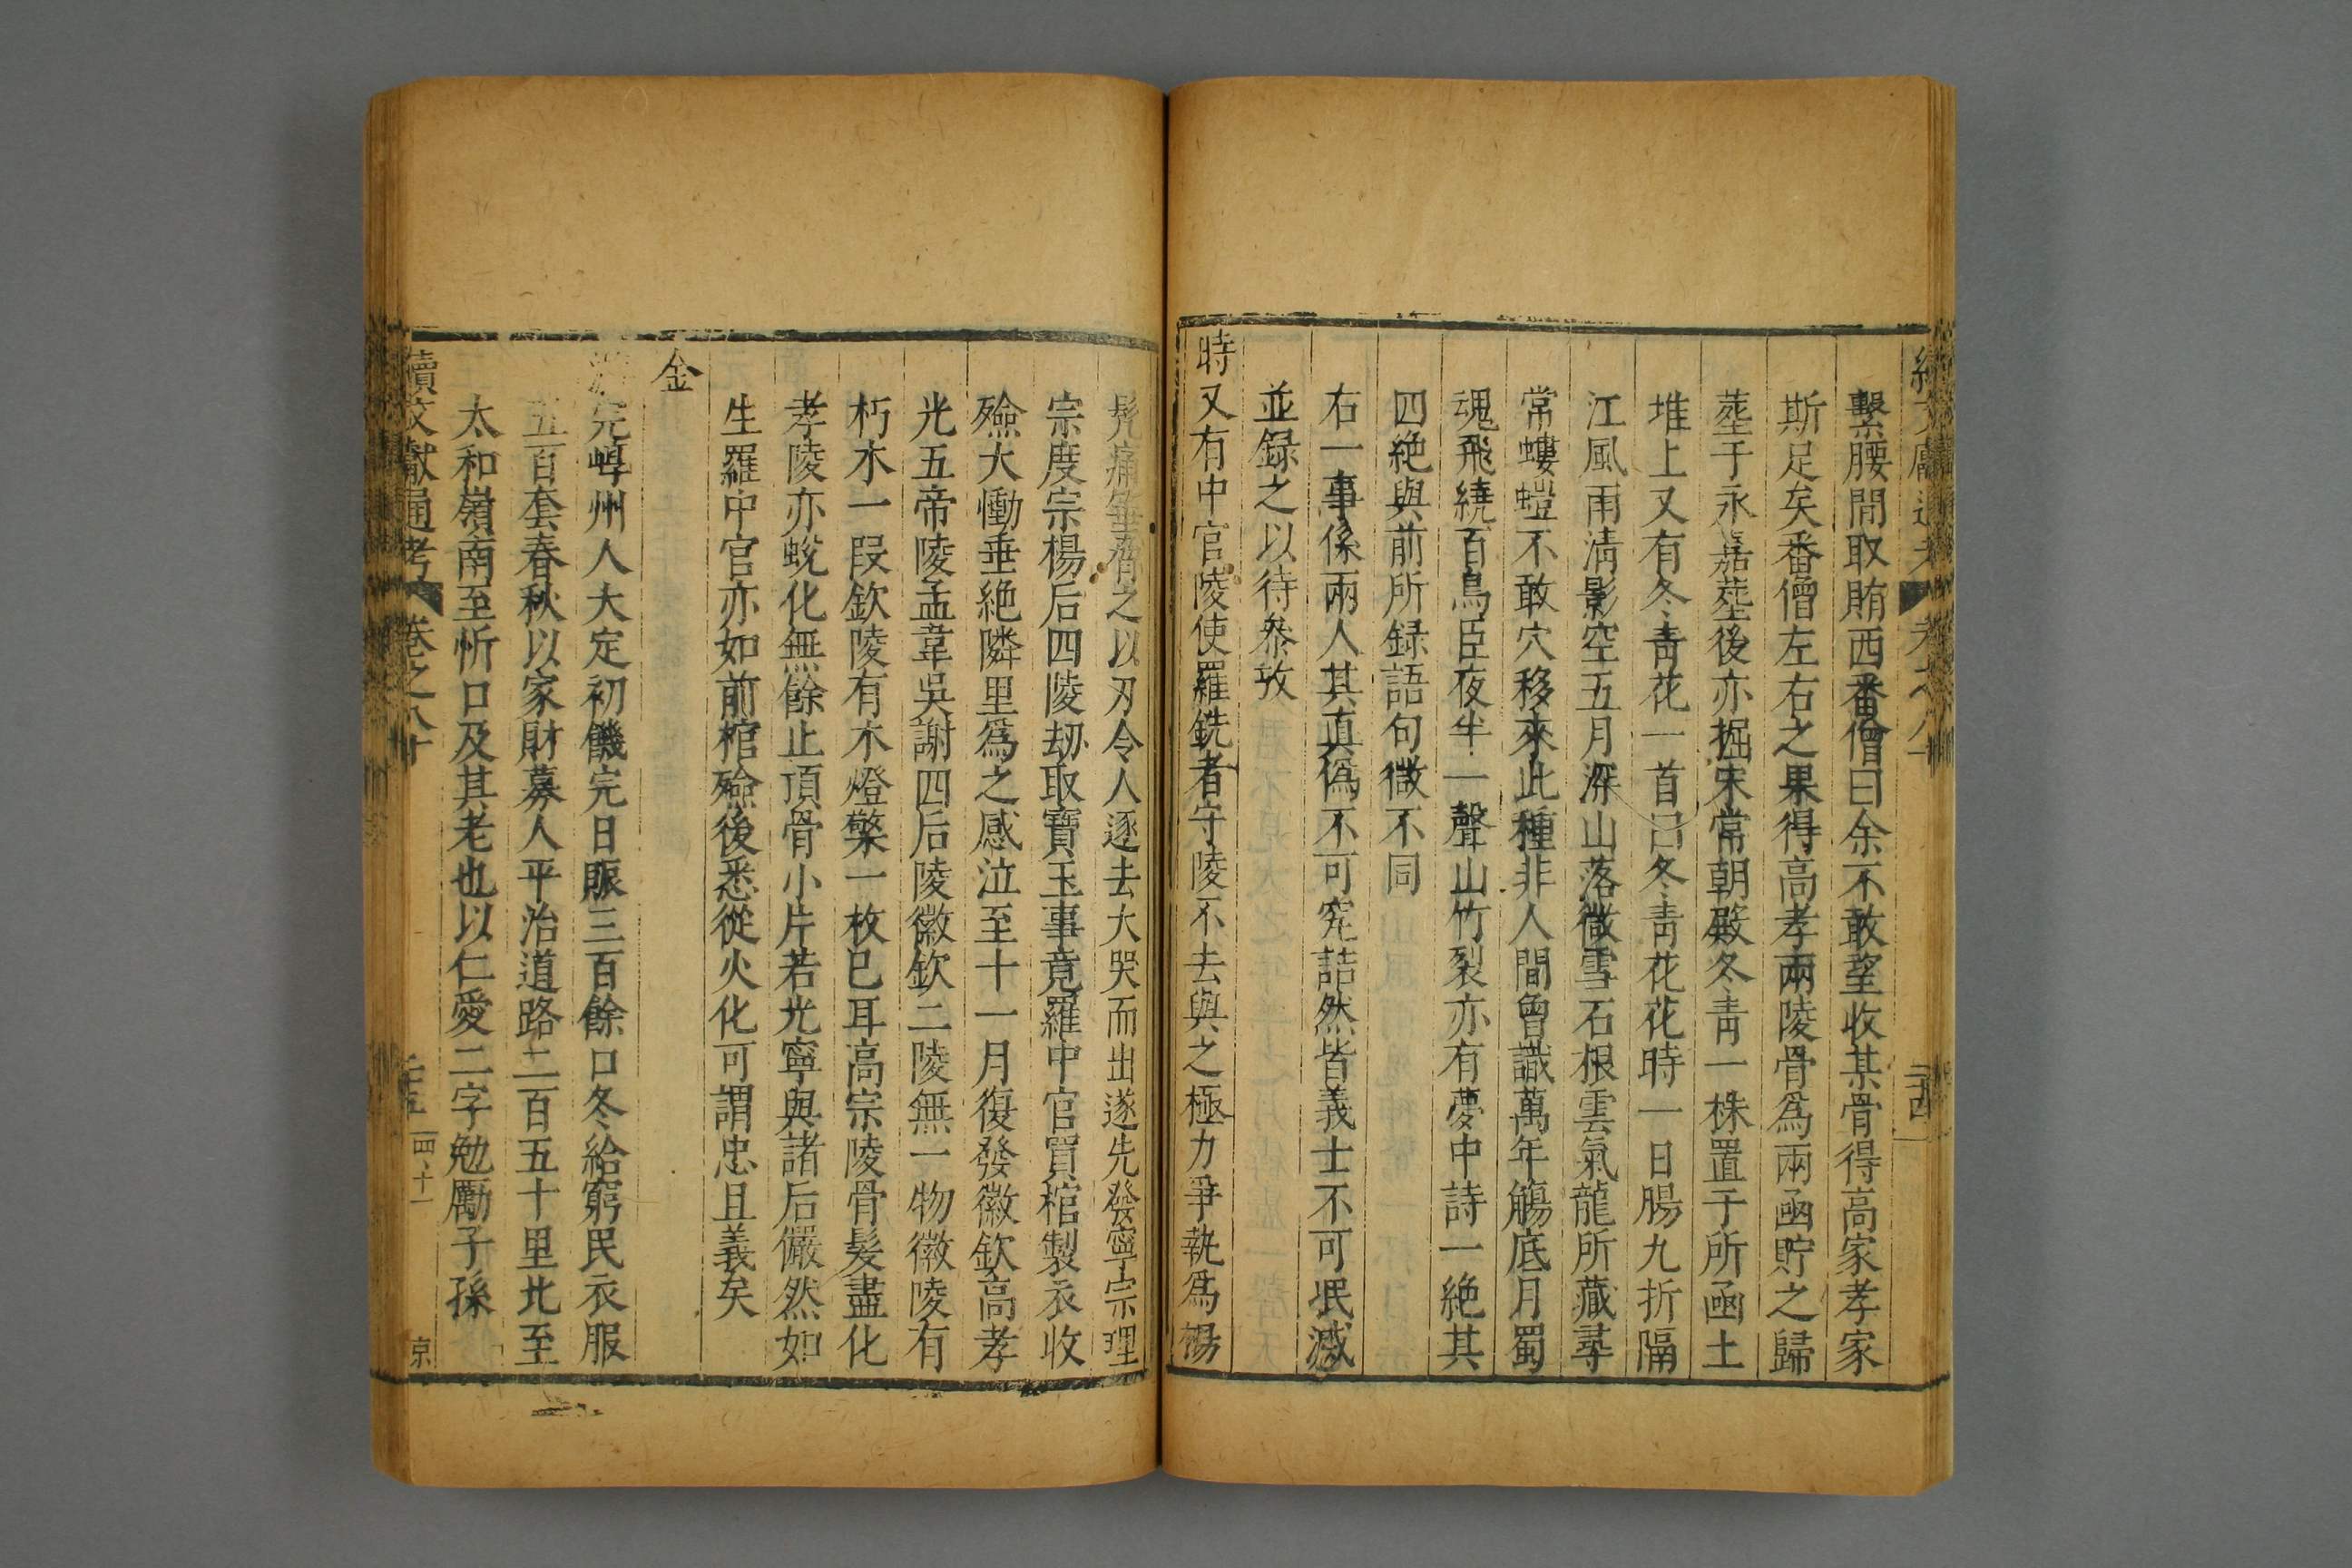 繫腰間取賄西番僧曰余不敢望收其骨得高家孝家
斯足矣番僧左右之果得高孝兩陵骨爲兩函貯之歸
塟于永嘉塟後亦掘宋常朝殿冬青一株置于所函土
堆上又有冬青花一首曰冬青花花時一日腸九折隔
江風雨淸影空五月深山落微雪石根雲氣龍所藏尋
常螻螘不敢穴移來此種非人間曾識萬年觴底月蜀
魂飛繞百鳥臣夜半一聲山竹裂亦有夢中詩一絶其
四絶與前所録語句微不同
右一事係兩人其真僞不可究詰然皆義士不可泯滅
並録之以待叅攷
時又有中官陵使羅銑者守陵不去與之極力爭執爲楊
髠痛箠脅之以刃令人逐去大哭而出遂先發寧宗理
宗度宗楊后四陵刼取寶玉事竟羅中官買棺製衣收
殮大慟垂絶隣里爲之感泣至十一月復發徽欽高孝
光五帝陵孟韋吳謝四后陵徽欽二陵無一物徽陵有
朽木一段欽陵有木燈檠一枚已耳高宗陵骨髮盡化
孝陵亦蛻化無餘止頂骨小片若光寧與諸后儼然如
生羅中官亦如前棺殮後悉從火化可謂忠且義矣
金
完崞州人大定初饑完日賑三百餘口冬給窮民衣服
五百套春秋以家財募人平治道路二百五十里北至
太和嶺南至忻口及其老也以仁愛二字勉勵子孫
續文獻通考 卷之八十 三十五 四十一 京